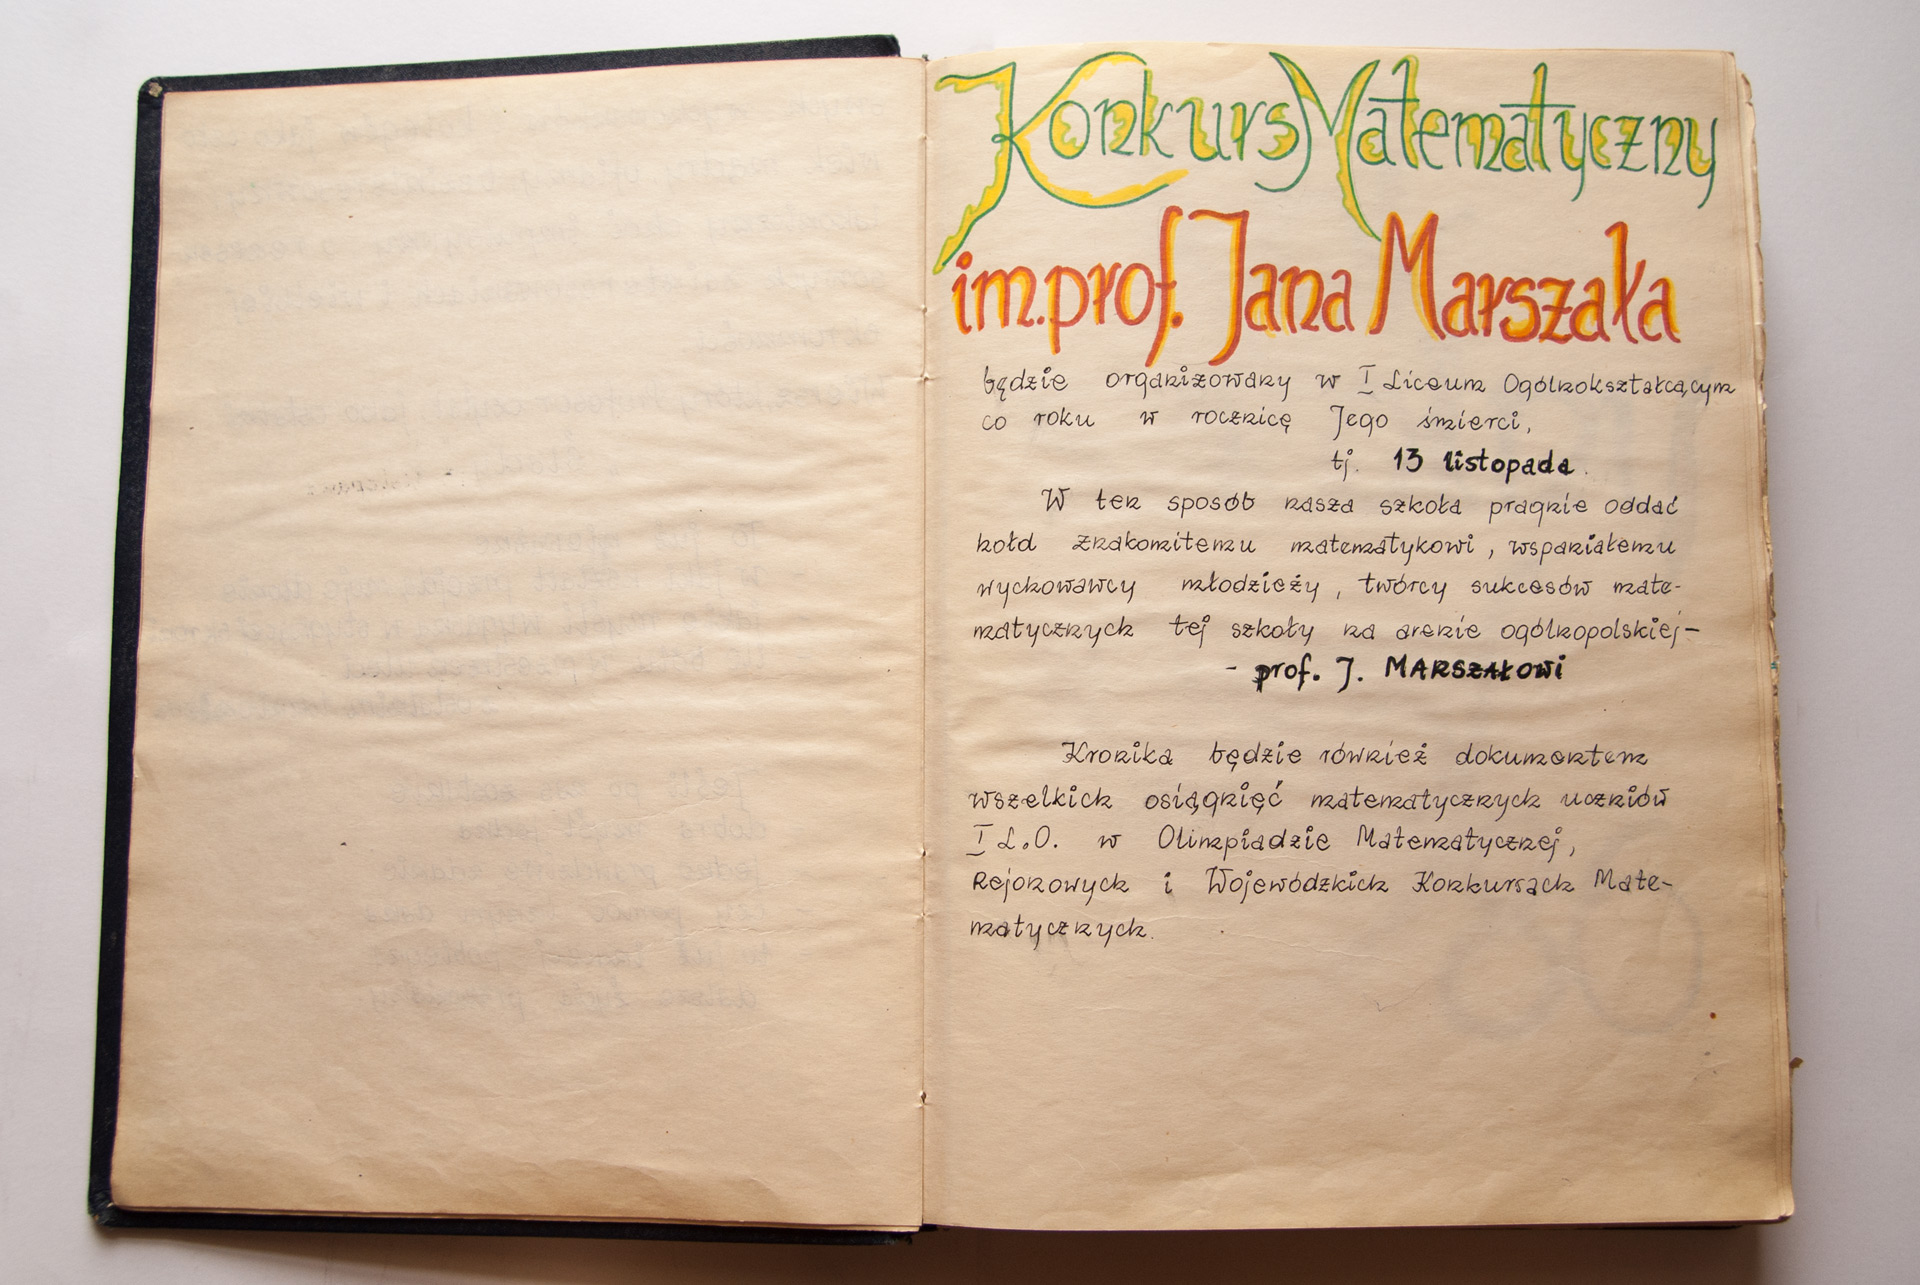 Konkurs Matematyczny
im. prof. Jana Marszała
będzie organizowany w I Liceum Ogólnokształcącym
co roku w rocznicę Jego śmierci,
tj. 13 listopada.
W ten sposób nasza szkoła pragnie oddać
hołd znakomitemu matematykowi, wspaniałemu
wychowawcy młodzieży, twórcy sukcesów mate-
matycznych tej szkoły na arenie ogólnopolskiej -
- prof. J. MARSZAŁOWI
Kronika będzie również dokumentem
wszelkich osiągnięć matematycznych uczniów
I L.O. w Olimpiadzie Matematycznej,
Rejonowych i Wojewódzkich Konkursach Mate-
matycznych.